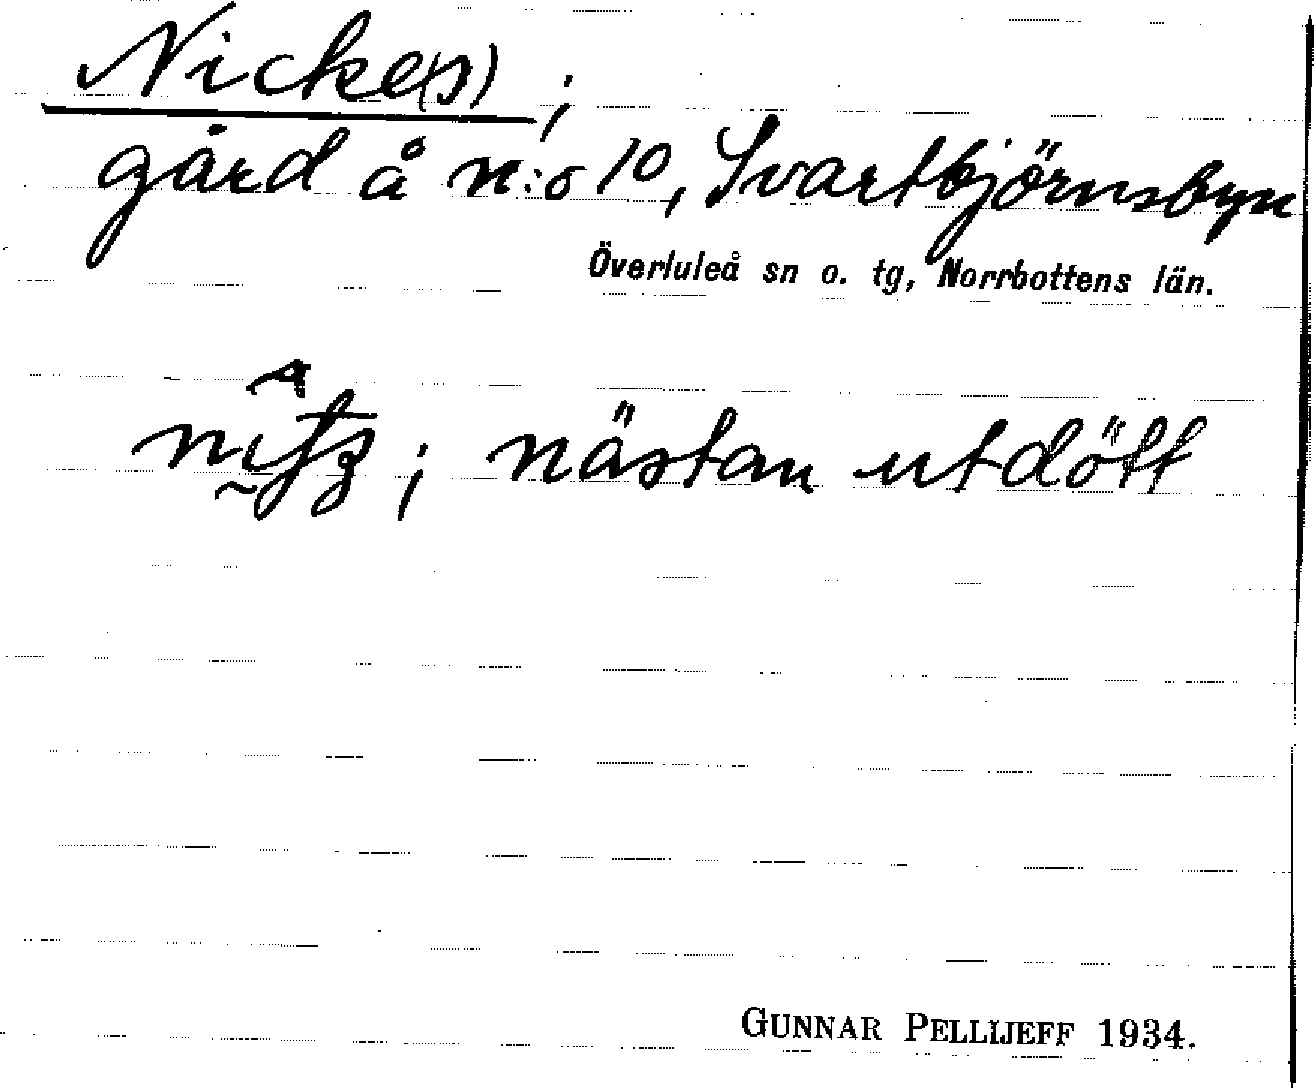 Nicke(s) ;
gård å n:o 10, Svartbjörnsbyn
Överluleå sn o. tg, Norrbottens län.
; nästan utdött
GUNNAR PELLIJEFF 1934.